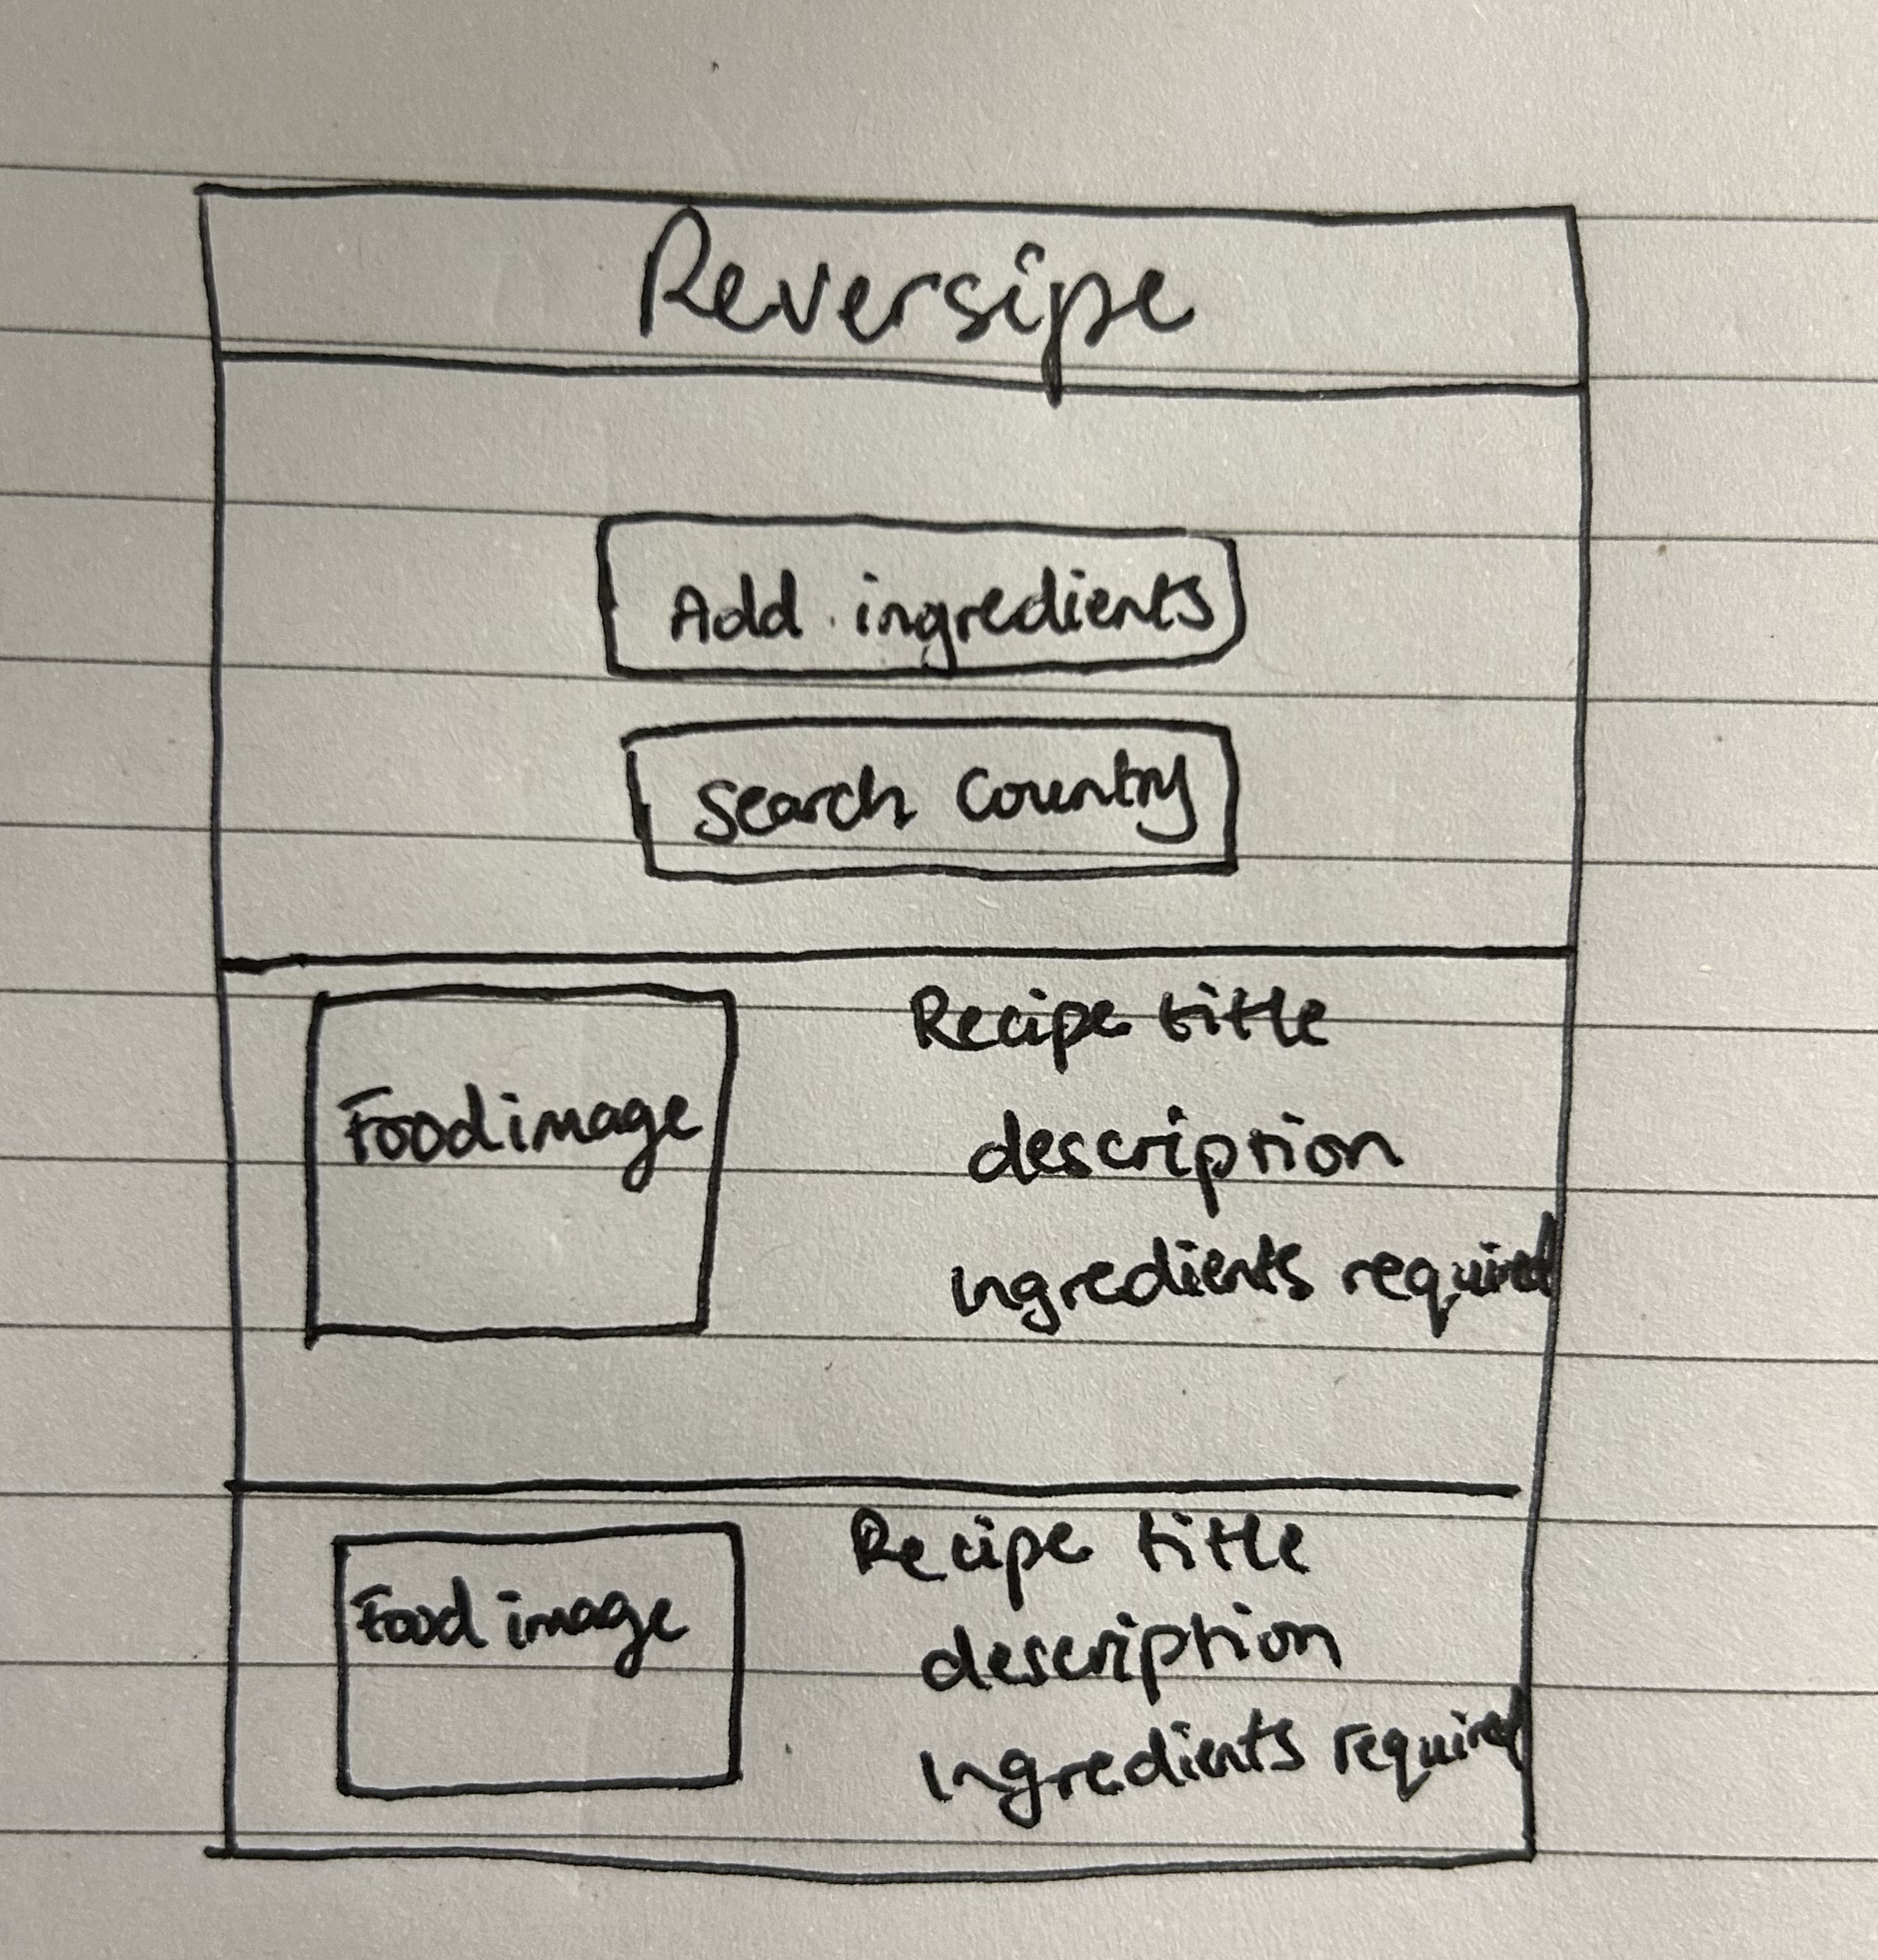 Reversipe
Add ingredients
Search Country
Food image
Recipe title
description
ingredients required
Food image
Recipe title
description
ingredients required